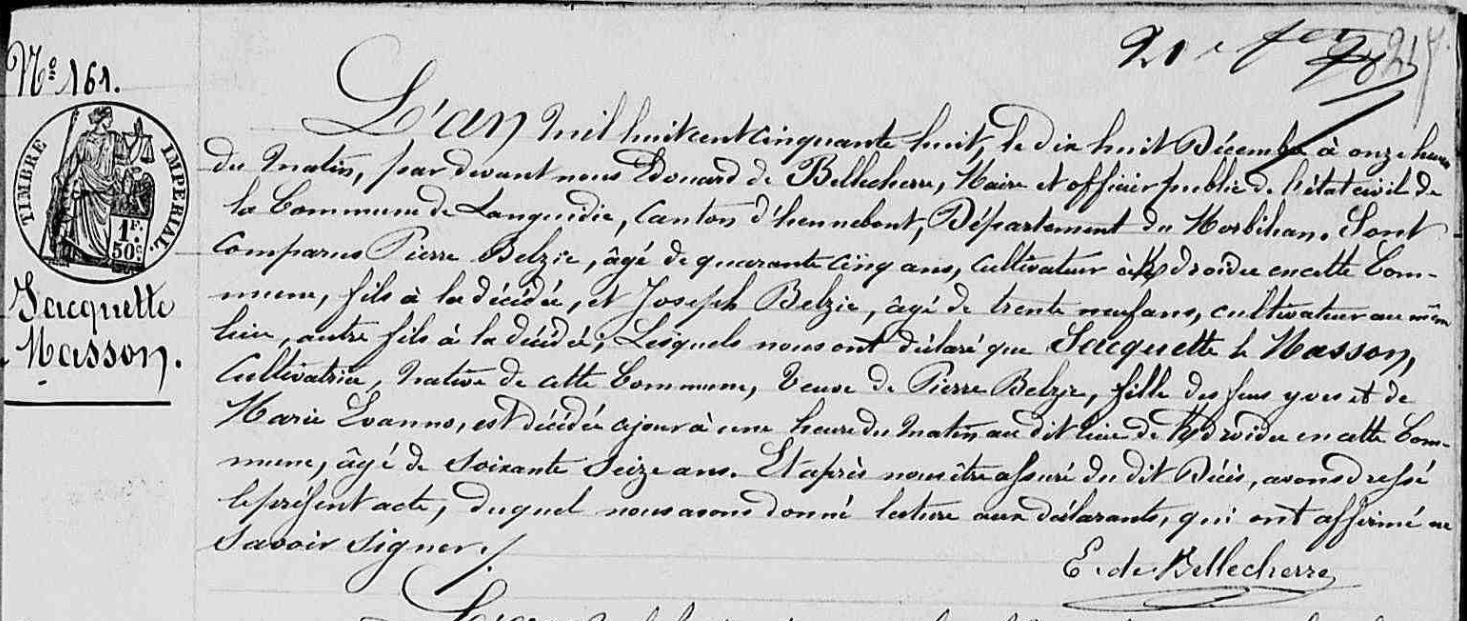 N.º 161.
TIMBRE IMPERIAL.
1F.
50c.
Jacquette
Masson.
21 e
L'an mil huit cent cinquante huit, le dix huit Décembre à onze heures
du matin, par devant nous Edouard de Bellecherre, Maire et officier public de l'état civil de
la Commune de Languidic, Canton d'hennebont, Département du Morbihan. Sont
Comparus Pierre Belzic, âgé de quarante cinq ans, Cultivateur à en cette Com-
mune, fils à la décédée, et Joseph Belzic, âgé de trente neuf ans, cultivateur au mêm
lieu, autre fils à la décédée; Lesquels nous ont déclaré que Jacquette le Masson,
Cultivatrice, native de cette Commune, Veuve de Pierre Belzic, fille des feus yves et de
Marie Evanno, est décédée ce jour à une heure du matin au dit lieu de en cette Com-
mune, âgé de soixante seize ans. Et après nous être assuré du dit Décès, avons dressé
le présent acte, duquel nous avons donné lecture aux déclarants, qui ont affirmé ne
savoir signer./.
E. de Bellecherre
L'an